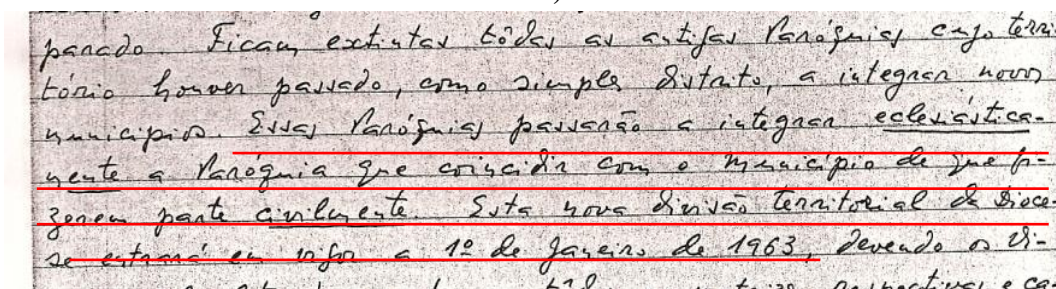 parado. Ficam extintas tôdas as antigas Paróquias cujo terri-
tório houver passado, como simples distrito, a integrar novos
municípios. Essas Paróquias passarão a integrar eclesiástica-
mente a Paróquia que coincidir com o município de que fi-
zerem parte civilmente. Esta nova divisão territorial da Dioce-
se entrará em vigor a 1º de Janeiro de 1963, devendo os Vi-
respectivas e ca-